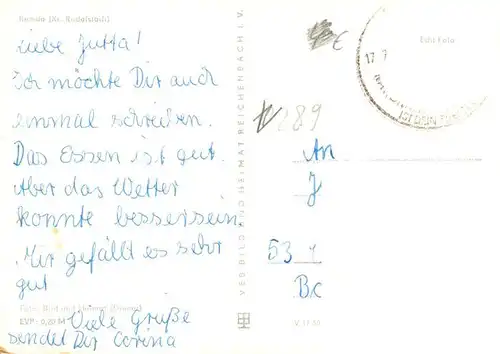 Remda (Kr. Rudolstadt)
Liebe Jutta!
Ich möchte Dir auch
einmal schreiben.
Das Essen ist gut.
Aber das Wetter
konnte bessersein.
Mir gefällt es sehr
gut
EVP: 0,20 M
Viele Grüße
sendet Dir Corina
VEB BILD UND HEIMAT REICHENBACH I. V.
Echt Foto
17. 7
289
An
J
53 1
Bc
V 11 50